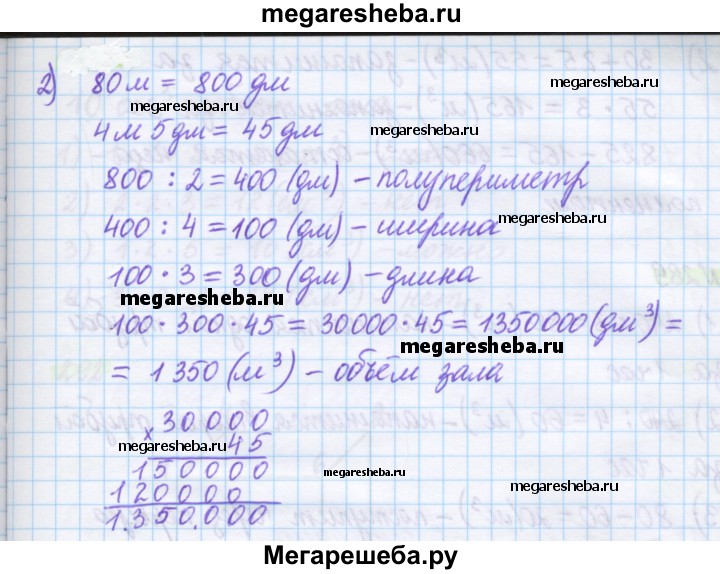 megaresheba.ru
2) 80 м = 800 дм
megaresheba.ru
4 м 5 дм = 45 дм
megaresheba.ru
800 : 2 = 400 (дм) – полупериметр
400 : 4 = 100 (дм) – ширина
megaresheba.ru
100 · 3 = 300 (дм) – длина
megaresheba.ru
100 · 300 · 45 = 30000 · 45 = 1350000 (дм³) =
megaresheba.ru
= 1350 (м³) – объём зала
× 30000
megaresheba.ru
45
150000
megaresheba.ru
megaresheba.ru
120000
1.350.000
megaresheba.ru
Мегарешеба.ру